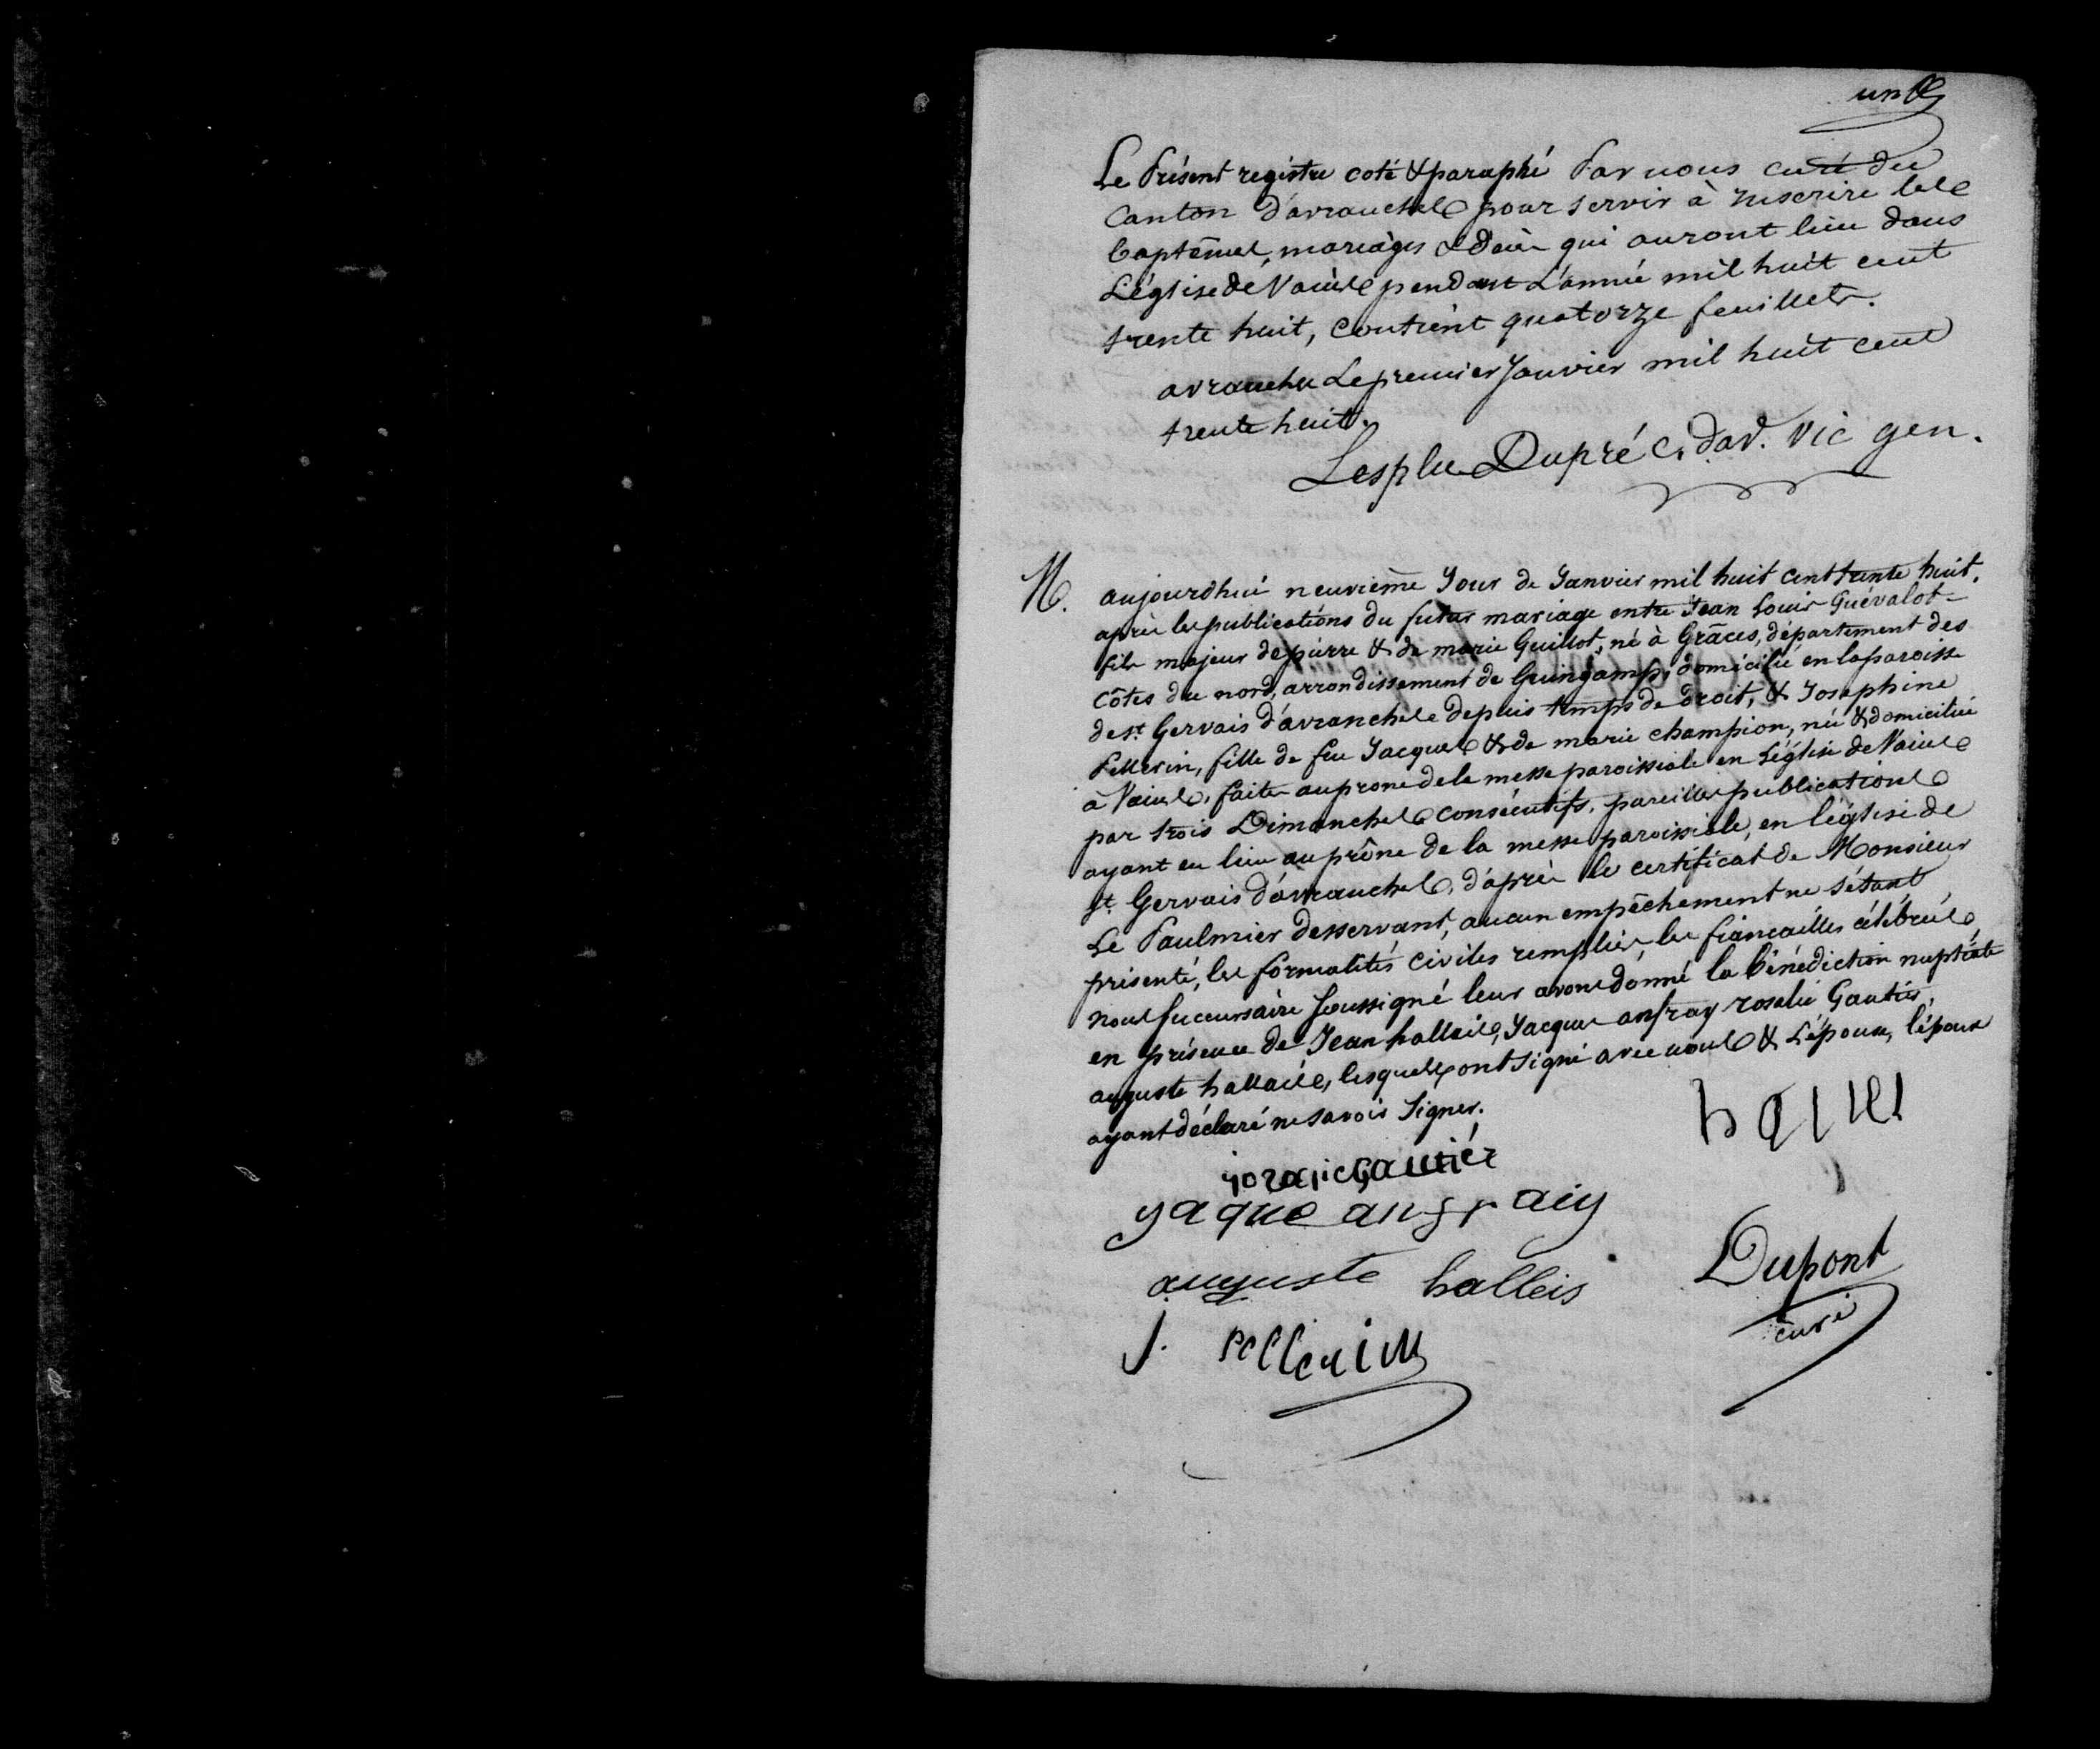 un
Le Présent registre coté & paraphé Par nous curé du
Canton d'avranches pour servir à inscrire les
baptêmes, mariages & décès qui auront lieu dans
L'église de Vains pendant L'année mil huit cent
trente huit, contient quatorze feuillets.
avranches Le premier Janvier mil huit cent
trente huit.
Lesplu Dupré c. d'av. vic gen.
M. aujourdhui neuvième Jour de Janvier mil huit cent trente huit,
après les publications du futur mariage entre Jean Louis Guévalot
fils majeur de pierre & de marie Guillot, né à Grâces, département des
côtes du nord, arrondissement de Guingamp, domicilié en la paroisse
de st. Gervais d'avranches depuis temps de droit, & Josephine
Pellerin, fille de feu Jacques & de marie champion, née & domiciliée
à Vains, faites au prone de la messe paroissiale en L'église de Vains
par trois Dimanches consécutifs, pareilles publications
ayant eu lieu au prône de la messe paroissiale, en l'église de
st. Gervais d'avranches, d'après le certificat de Monsieur
Le Paulmier desservant, aucun empêchement ne s'étant
présenté, les formalités civiles remplies, les fiancailles célébrées
nous succursaire soussigné leur avons donné la bénédiction nuptiale
en présence de Jean hallais, Jacques anfray rosalie Gautier,
auguste hallais, lesquels ont signé avec nous & L'épouse, l'époux
ayant déclaré ne savoir signer.
Gautiér
yaque anfraiy
auguste halleis
Dupont
curé
J. Pellerin